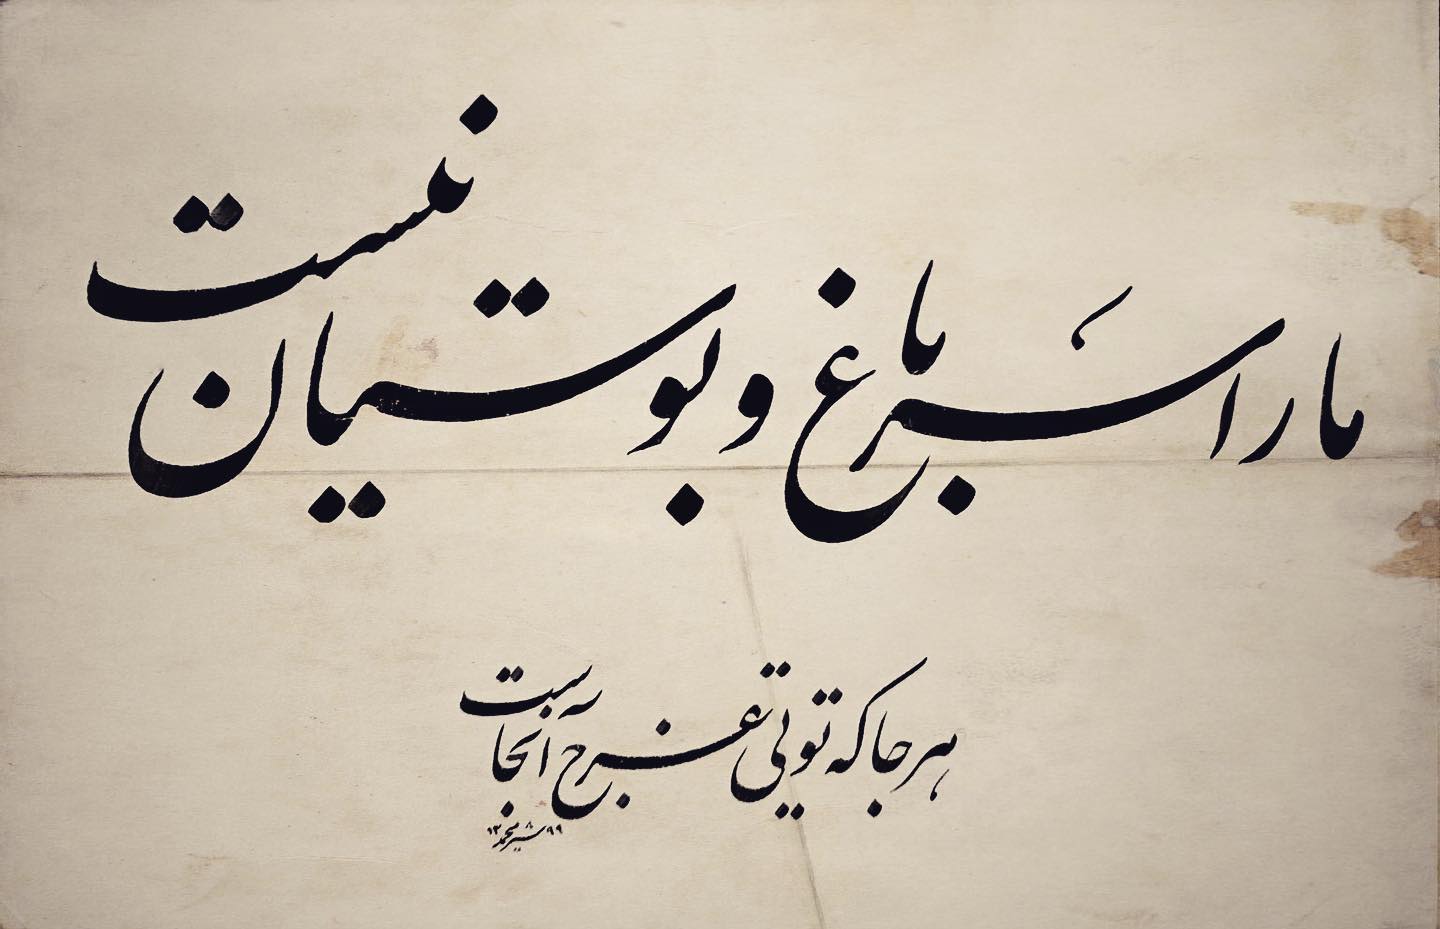 ما را سَر باغ و بوستیان نیست
هر جا که تویی تفرج آنجاست
شیرمحمد ۱۳۹۹